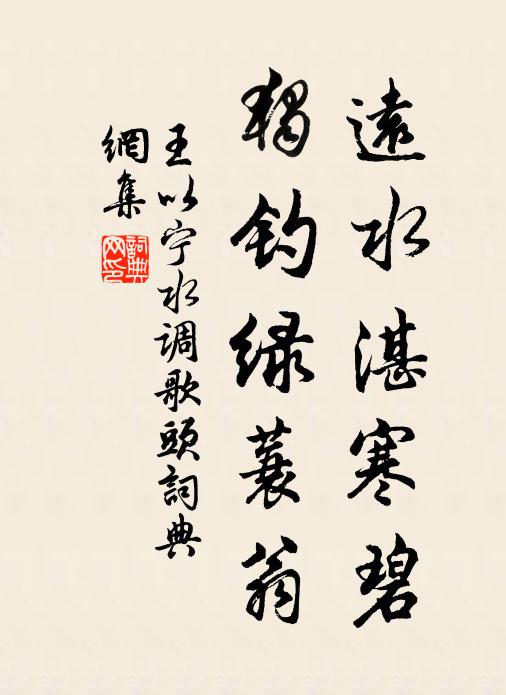 遠水湛寒碧
獨钓绿蓑翁
王以宁水调歌頭詞典
網集
詞典
网印